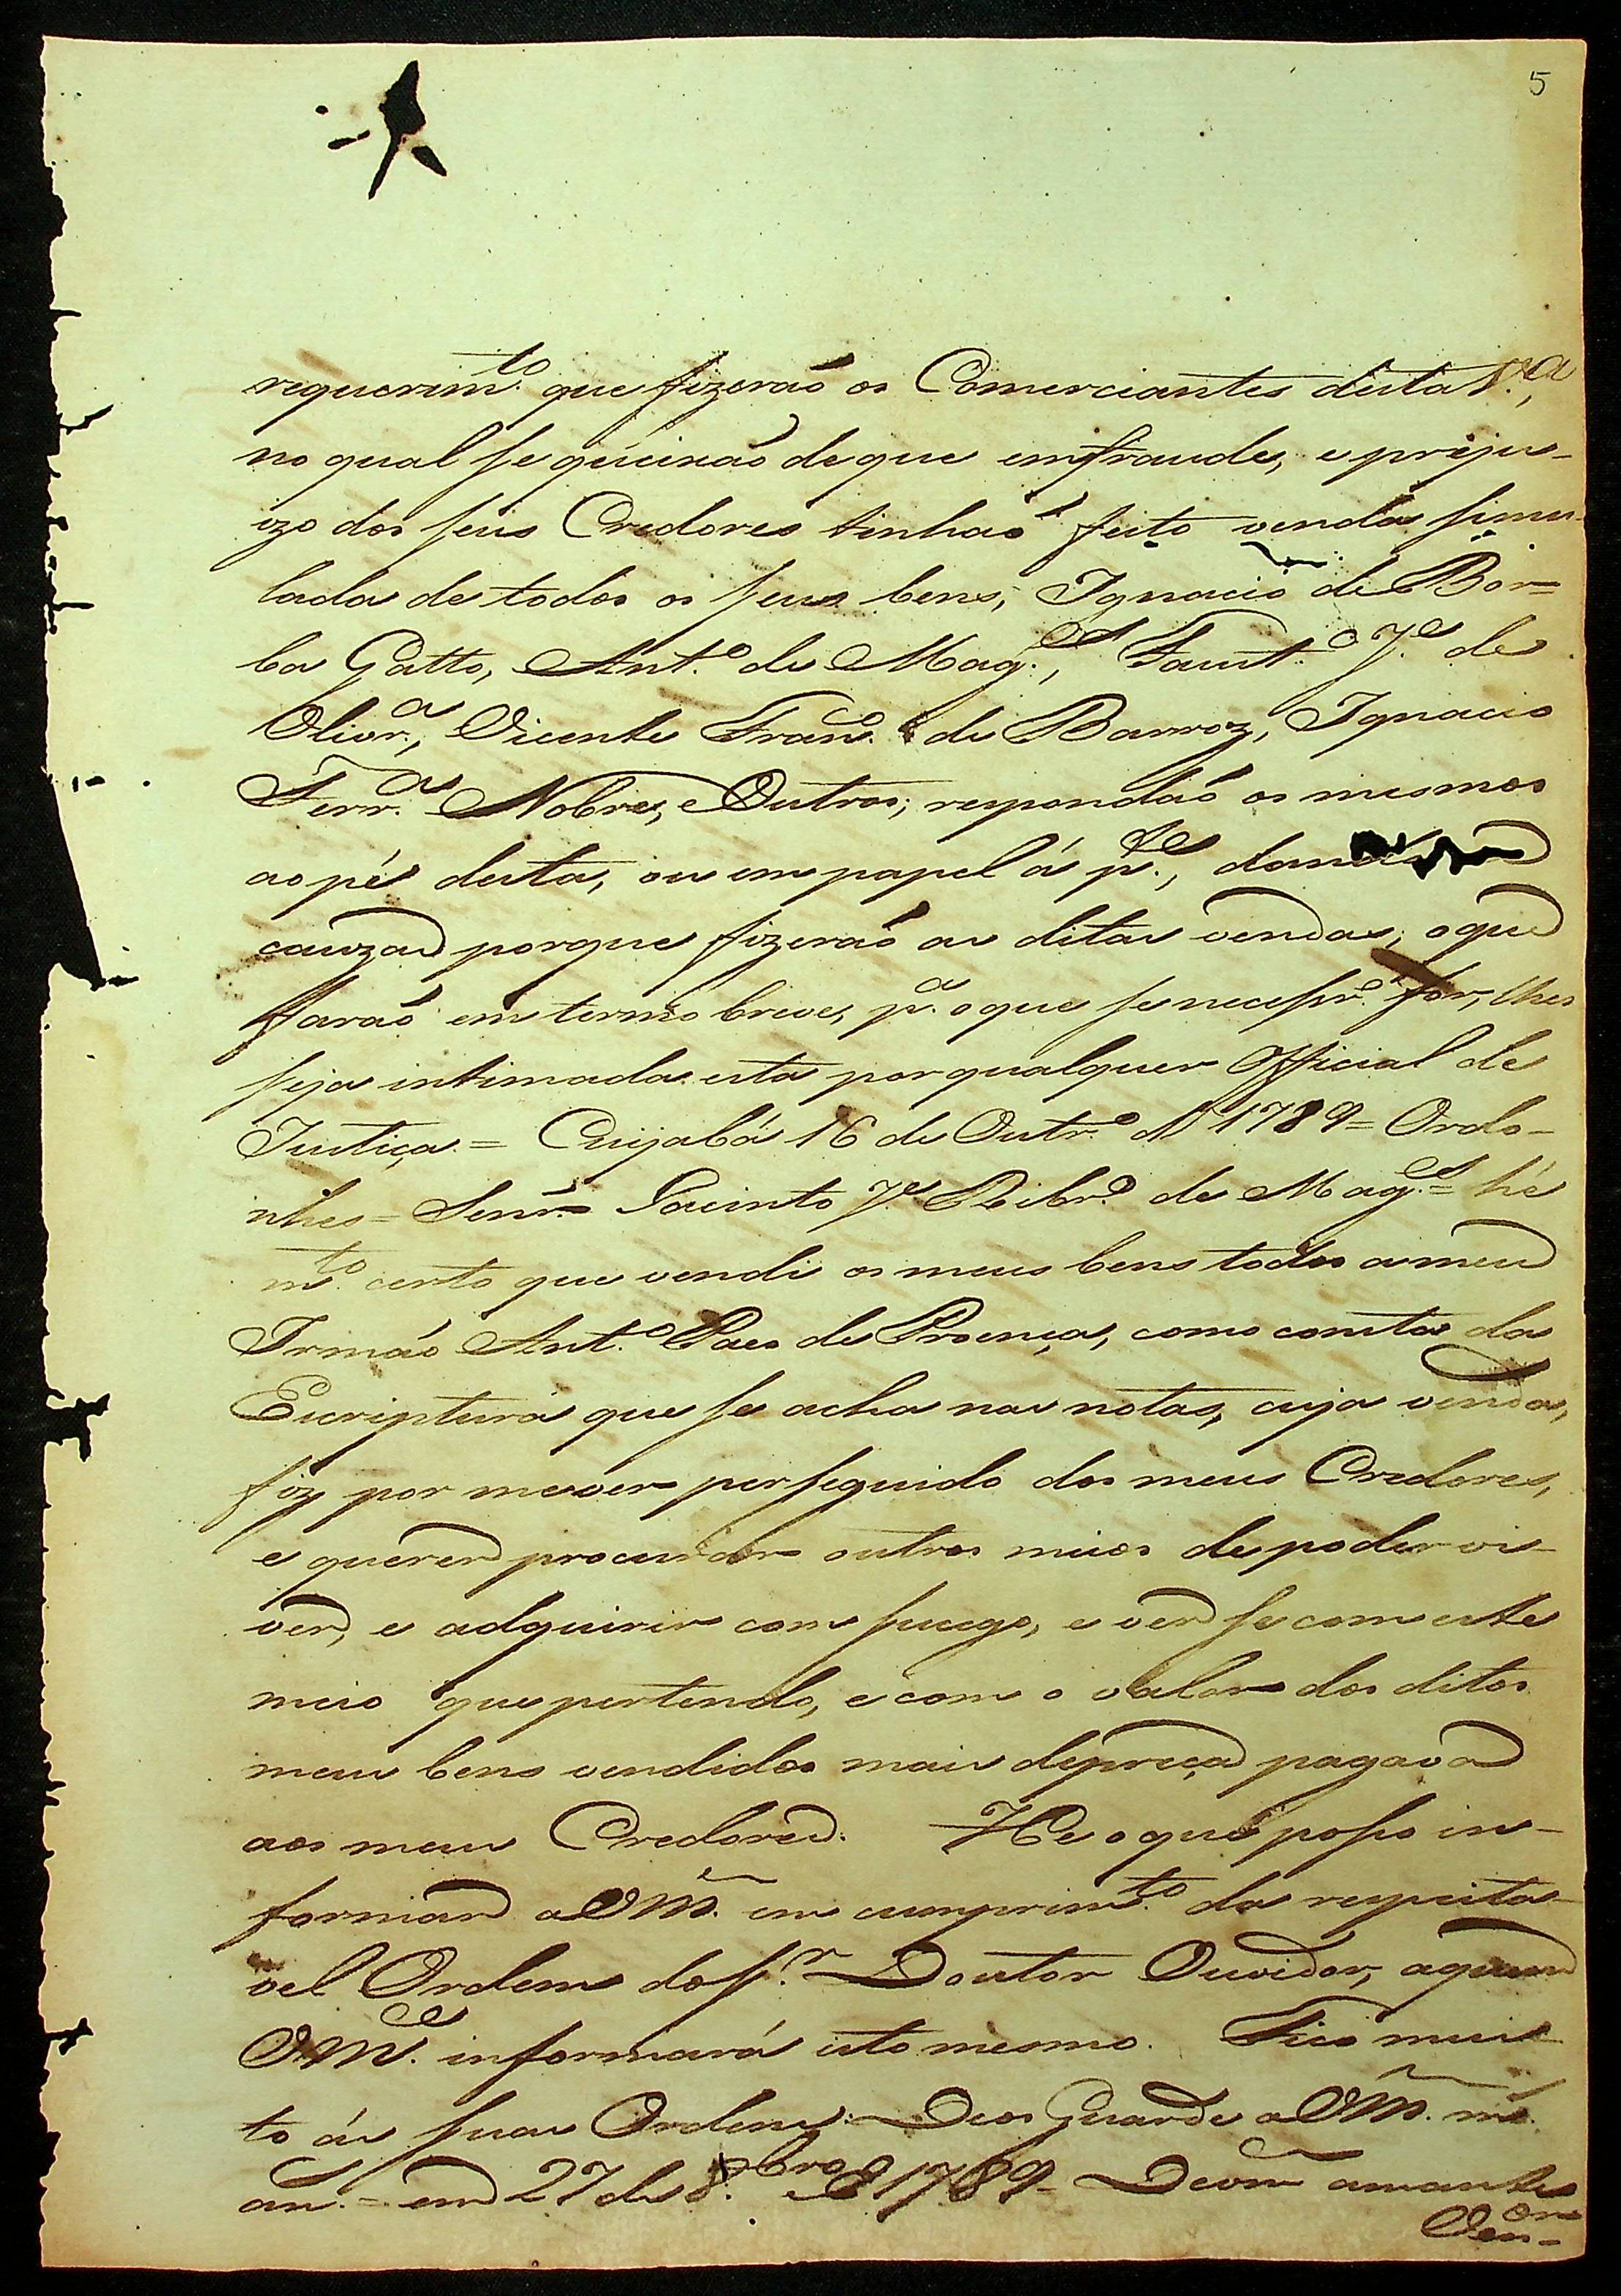 5
requerim.to que fizeraõ os Comerciantes desta V.a,
no qual se queixaõ de que em fraude, e preju-
izo dos seus Credores tinhaõ feito venda simu-
lada de todos os seus bens, Ignacio de Bor-
ba Gatto, Ant.o de Mag.es, Faust.o J.e de
Olivr.a, Vicente Fran.co de Barros, Ignacio
Ferr.a Nobre, e Outros; respondaõ os mesmos
ao pé desta, ou em papel á p.te, dando a
cauza porque fizeraõ as ditas vendas; o que
faraõ em termo breve, p.a o que se necessr.o for, lhes
seja intimada esta por qualquer Official de
Justiça = Cuyabá 16 de Outr.o d 1789 = Ordo-
nhes = Senr. Jacinto J.e Ribr.o de Mag.es = hé
m.to certo que vendi os meus bens todos a meu
Irmaõ Ant.o Paes de Proença, como consta da
Escriptura que se acha nas notas, cuja venda,
fiz por me ver perseguido dos meus Credores,
e querer procurar outros meios de poder vi-
ver, e adquirir com sucego, e ver se com este
meio que pertendo, e com o valor dos ditos
meus bens vendidos mais depreça pagava
aos meus Credores. He o que posso in-
formar a VM. em cumprim.to da respeita-
vel Ordem do S.r Doutor Ouvidor, a quem
VM.ce informará isto mesmo. Fico mui-
to ás suas Ordens. Deos Guarde a VM. m.s
an.s = em 27 de 8.bro d 1789 = De VM amante
Ven.or